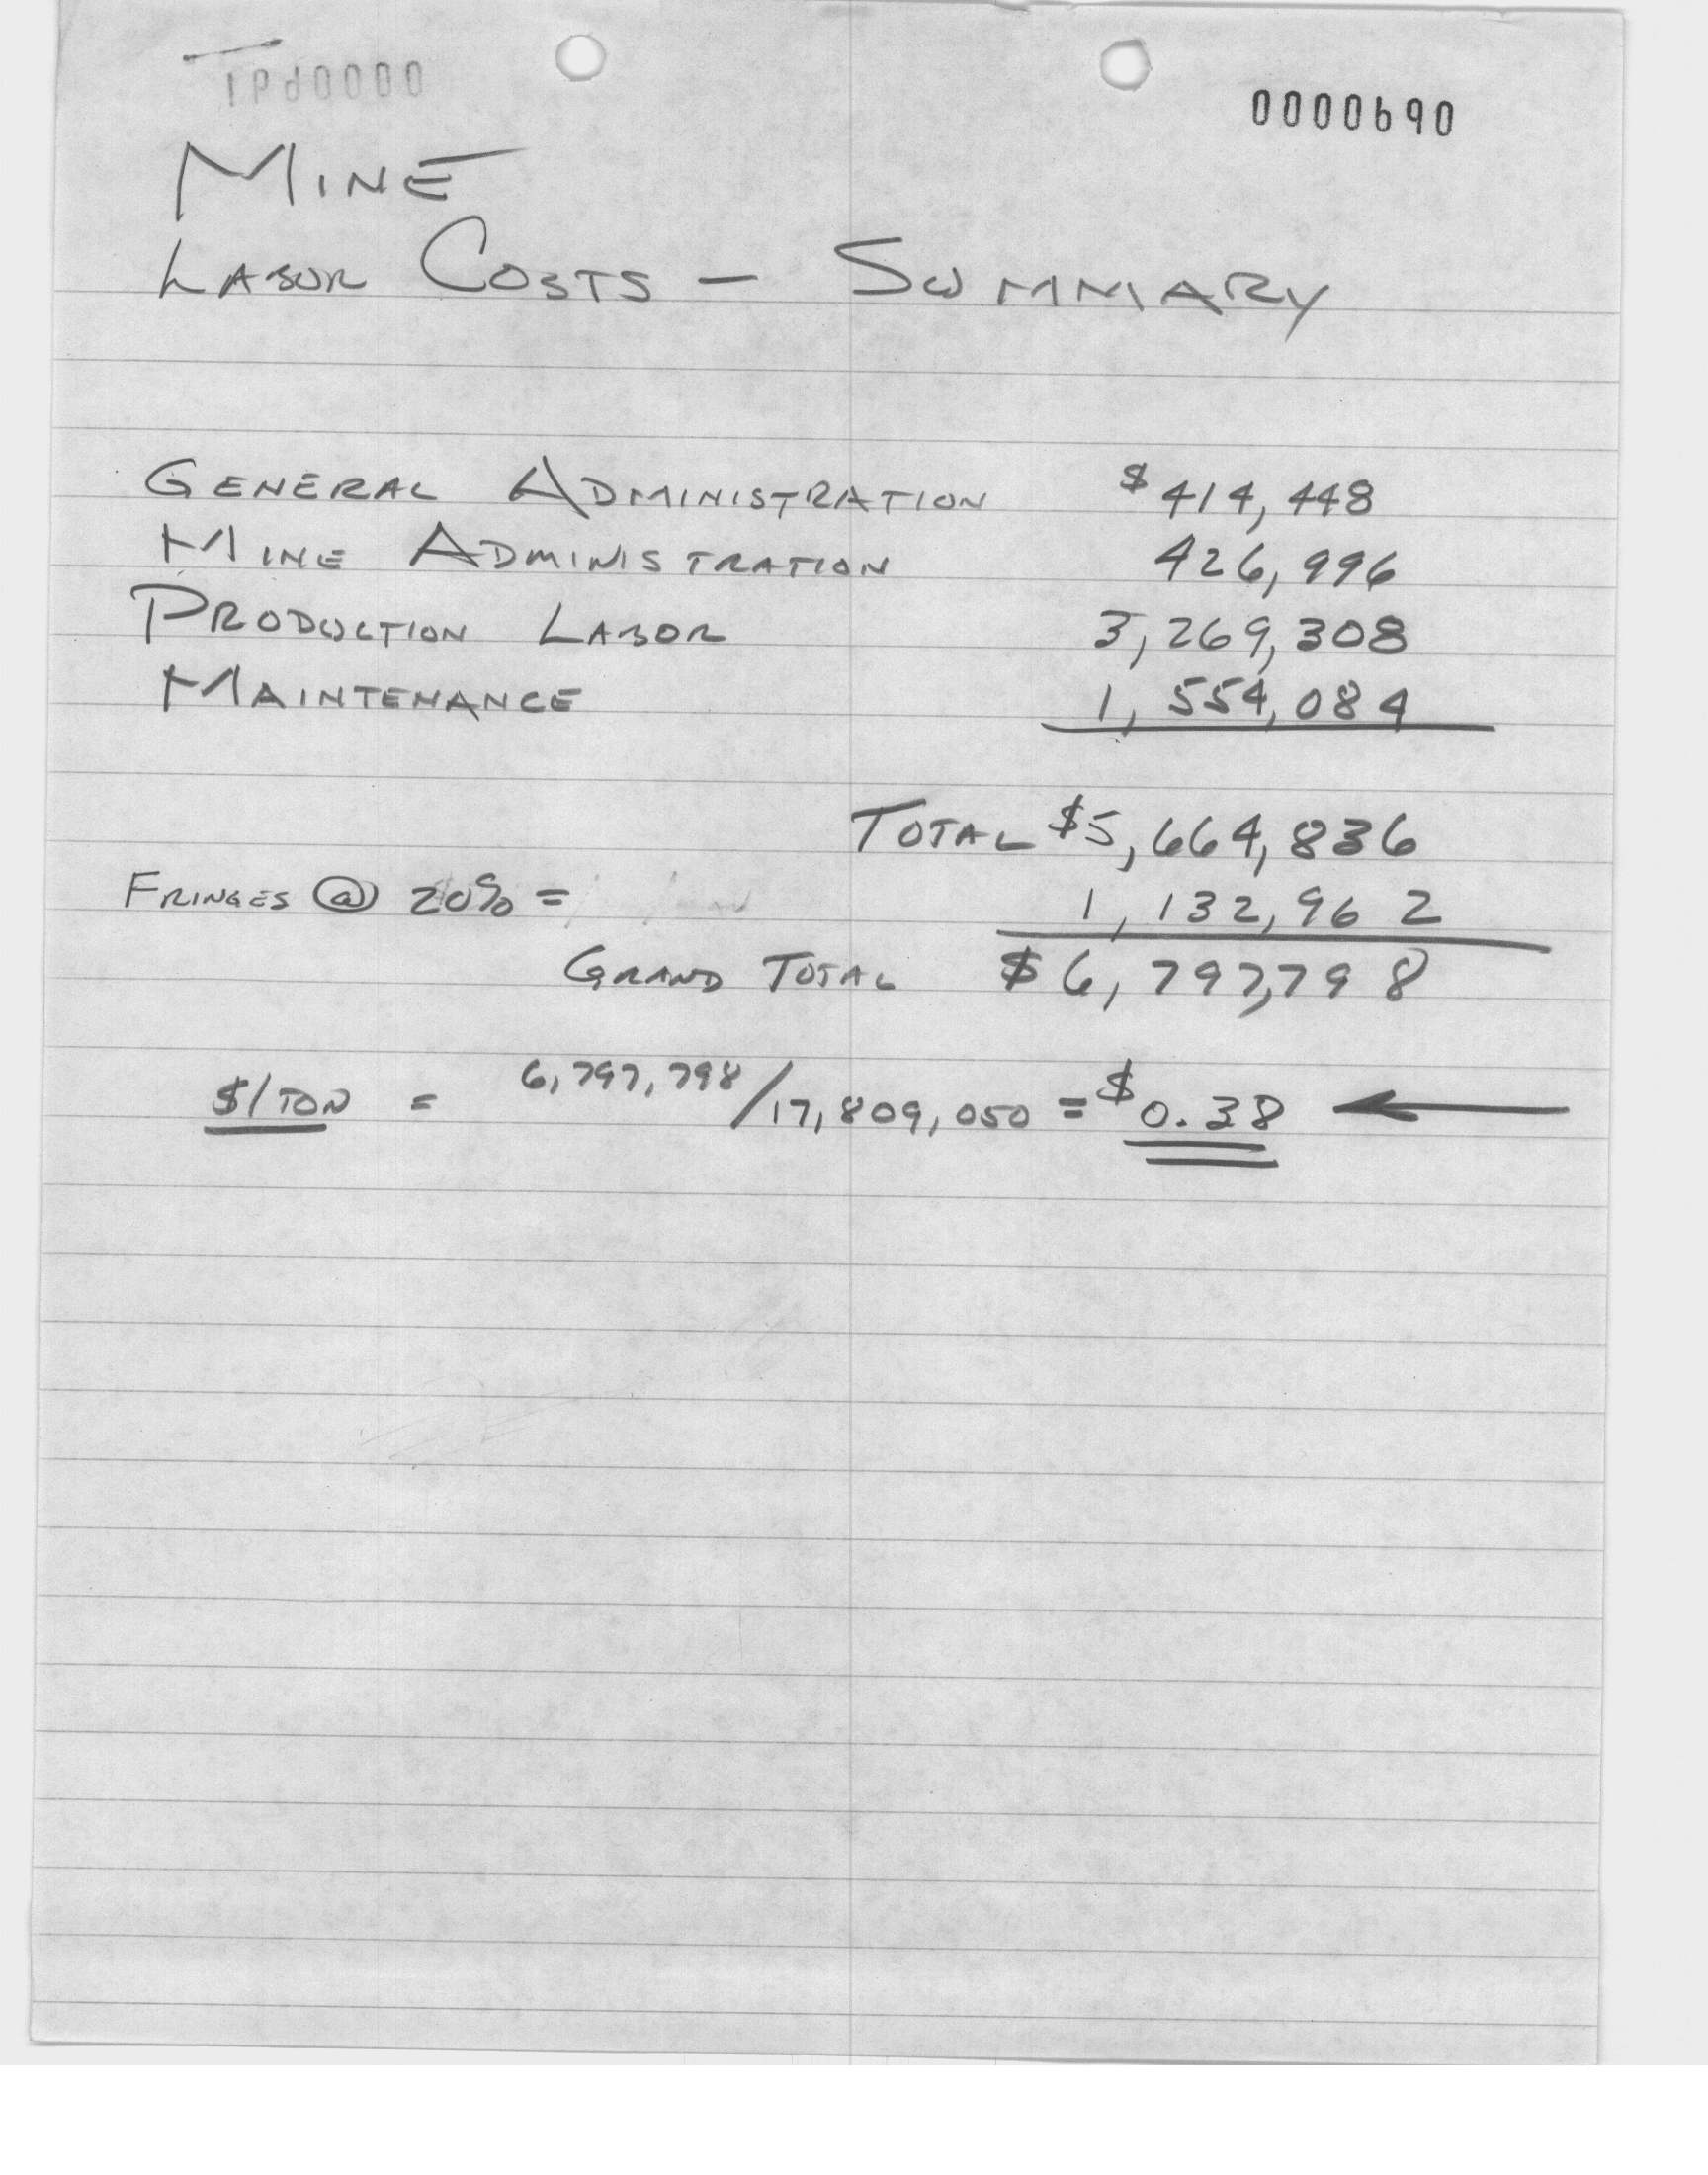 0000690
MINE
LABOR COSTS - SUMMARY
GENERAL ADMINISTRATION $414,448
MINE ADMINISTRATION 426,996
PRODUCTION LABOR 3,269,308
MAINTENANCE 1,554,084
TOTAL $5,664,836
FRINGES @ 20% = 1,132,962
GRAND TOTAL $6,797,798
$/TON = 6,797,798/17,809,050 = $0.38